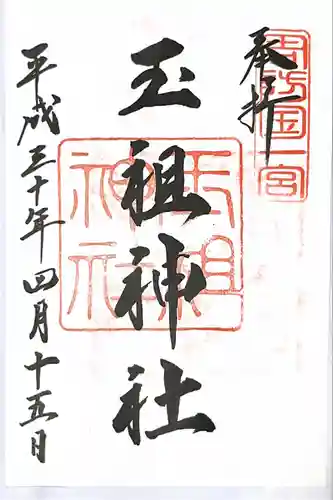 奉拝
周防国一宮
玉祖神社
玉祖神社
平成三十年四月十五日